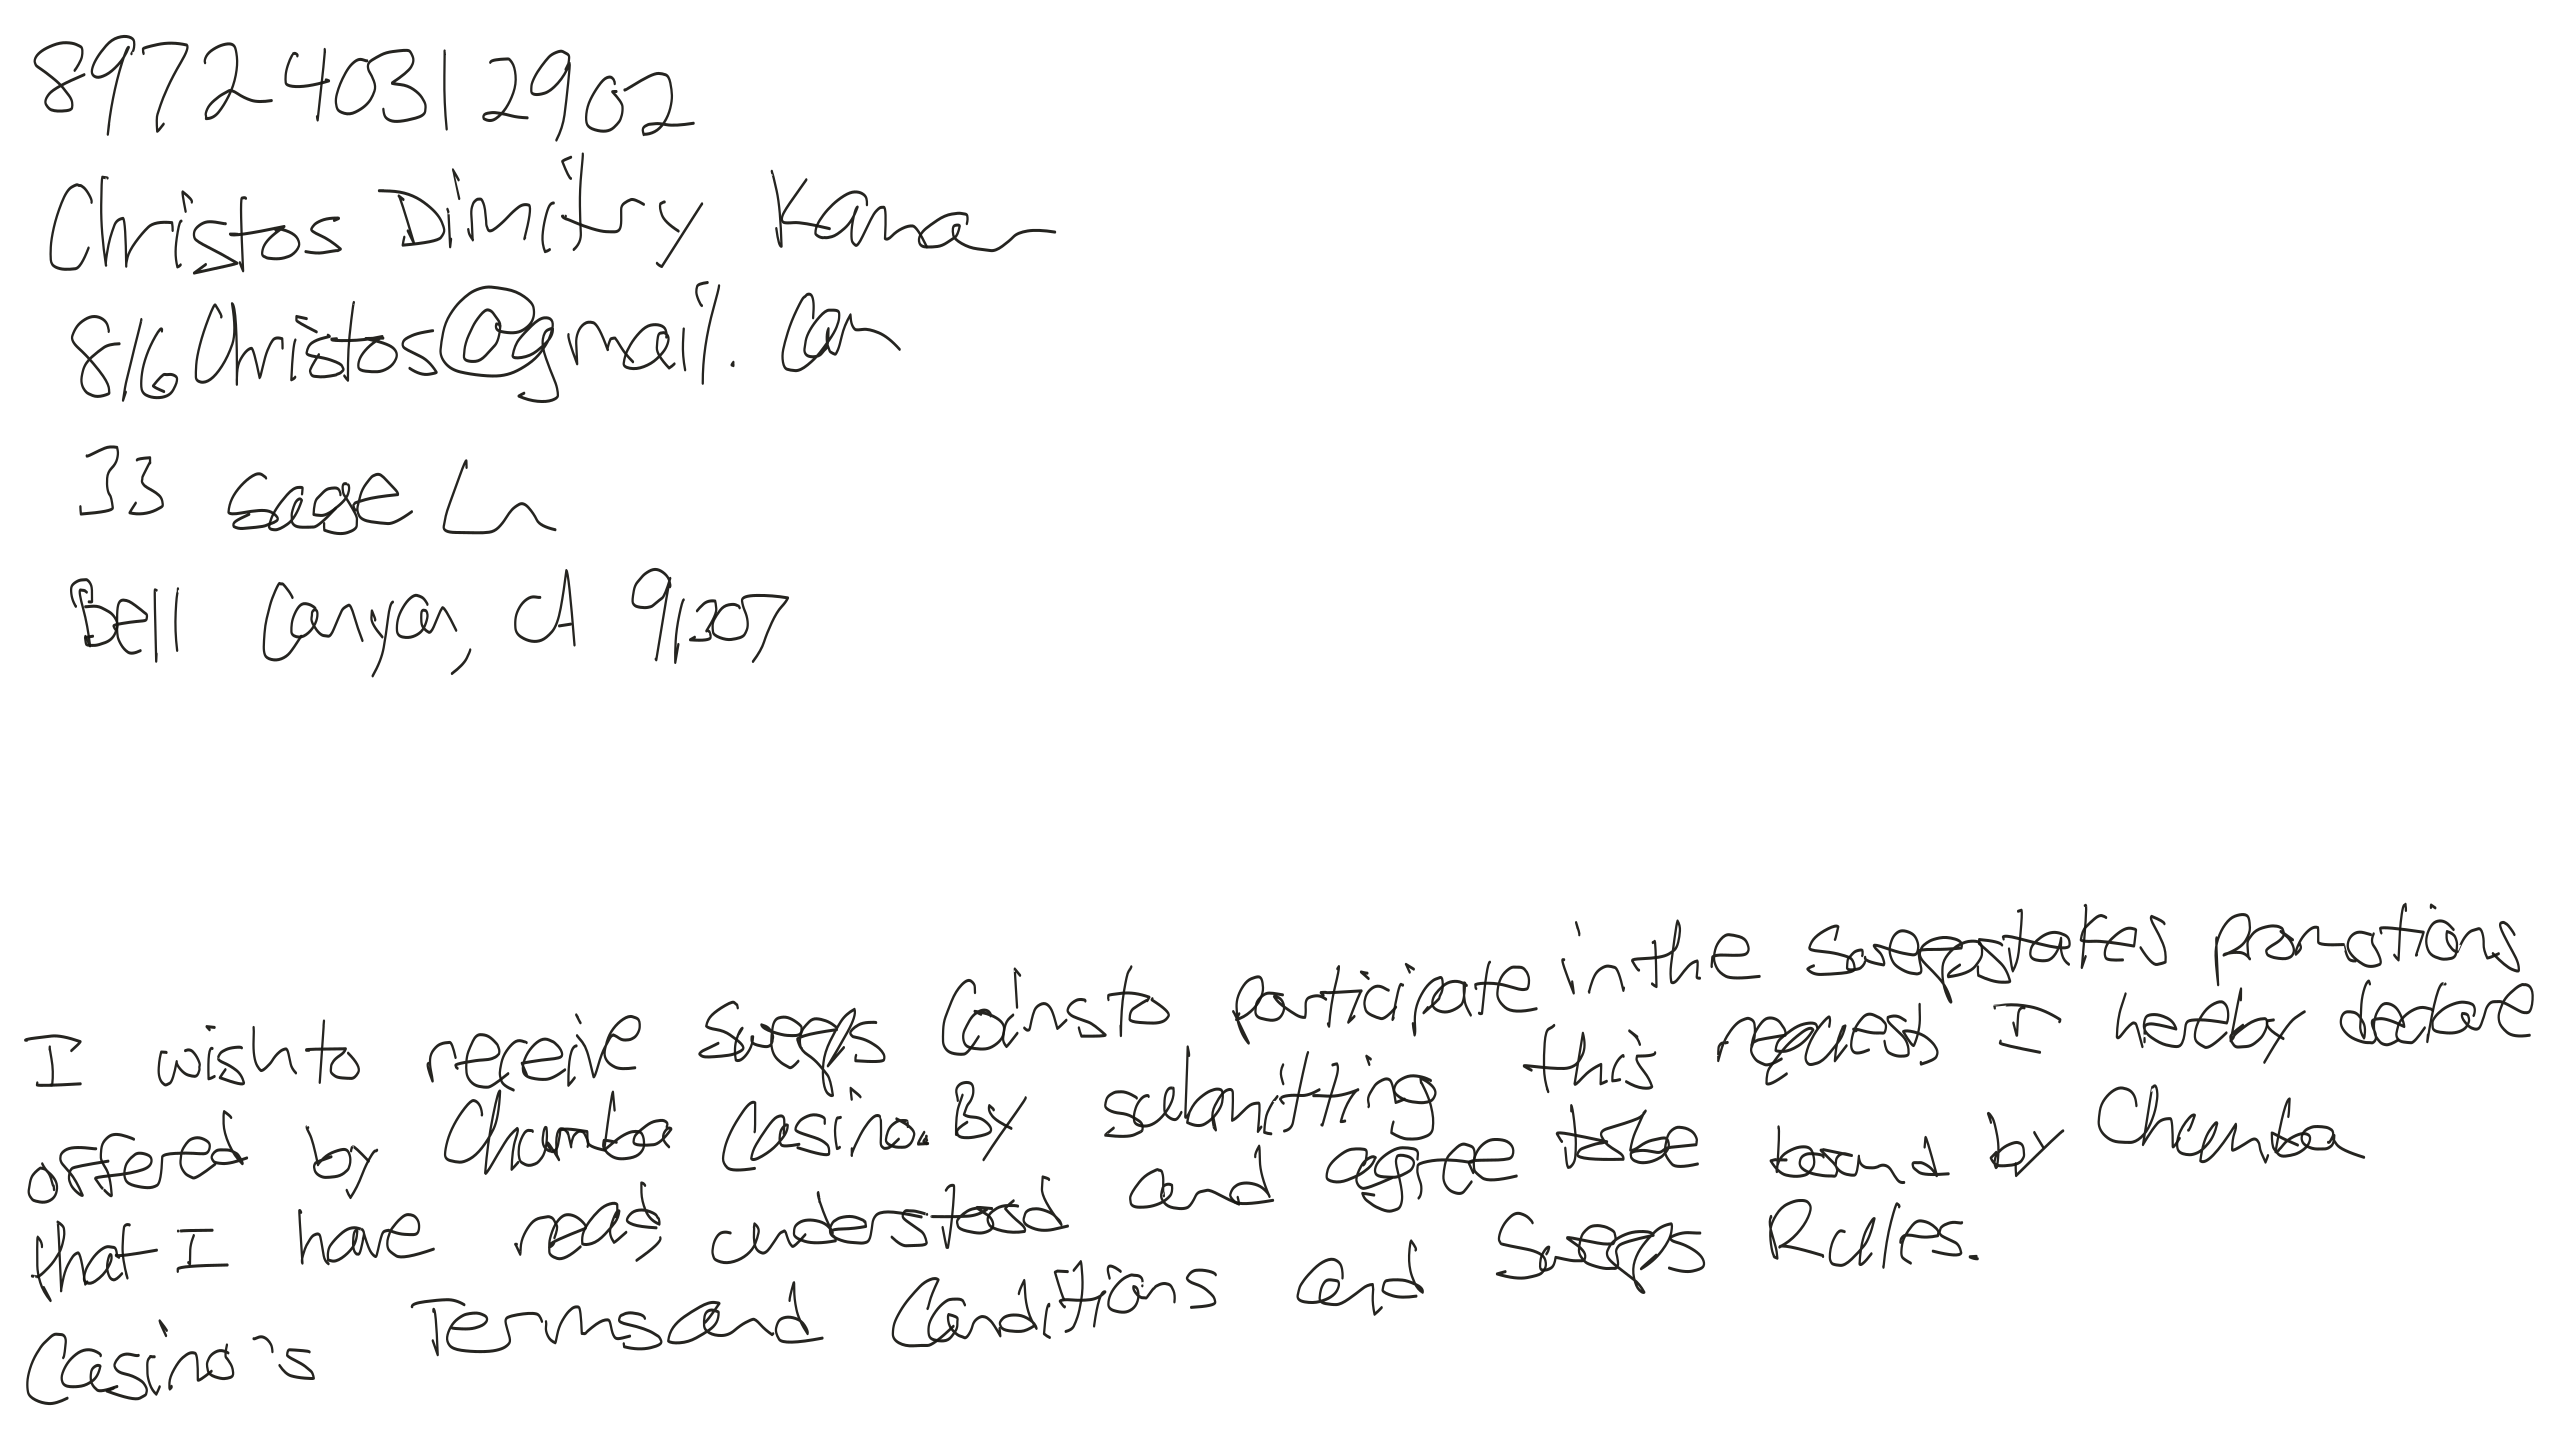 897240312902
Christos Dimitry
816Christos@gmail.com
33 Sage Ln
Bell Canyon, CA 91307
I wish to receive Sweeps Coins to participate in the sweepstakes promotions
offered by Chumba Casino. By submitting this request, I hereby declare
that I have read, understood and agree to be bound by Chumba
Casino's Terms and Conditions and Sweeps Rules.